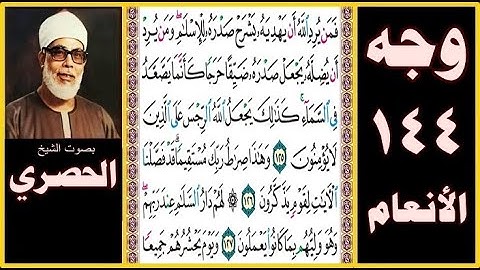 وجه
١٤٤
الأنعام
فَمَن يُرِدِ ٱللَّهُ أَن يَهْدِيَهُۥ يَشْرَحْ صَدْرَهُۥ لِلْإِسْلَٰمِ ۖ وَمَن يُرِدْ
أَن يُضِلَّهُۥ يَجْعَلْ صَدْرَهُۥ ضَيِّقًا حَرَجًا كَأَنَّمَا يَصَّعَّدُ
فِى ٱلسَّمَآءِ ۚ كَذَٰلِكَ يَجْعَلُ ٱللَّهُ ٱلرِّجْسَ عَلَى ٱلَّذِينَ
لَا يُؤْمِنُونَ ١٢٥ وَهَٰذَا صِرَٰطُ رَبِّكَ مُسْتَقِيمًا ۗ قَدْ فَصَّلْنَا
ٱلْءَايَٰتِ لِقَوْمٍ يَذَّكَّرُونَ ١٢٦ ۞ لَهُمْ دَارُ ٱلسَّلَٰمِ عِندَ رَبِّهِمْ ۖ
وَهُوَ وَلِيُّهُم بِمَا كَانُوا۟ يَعْمَلُونَ ١٢٧ وَيَوْمَ يَحْشُرُهُمْ جَمِيعًا
بصوت الشيخ
الحصري